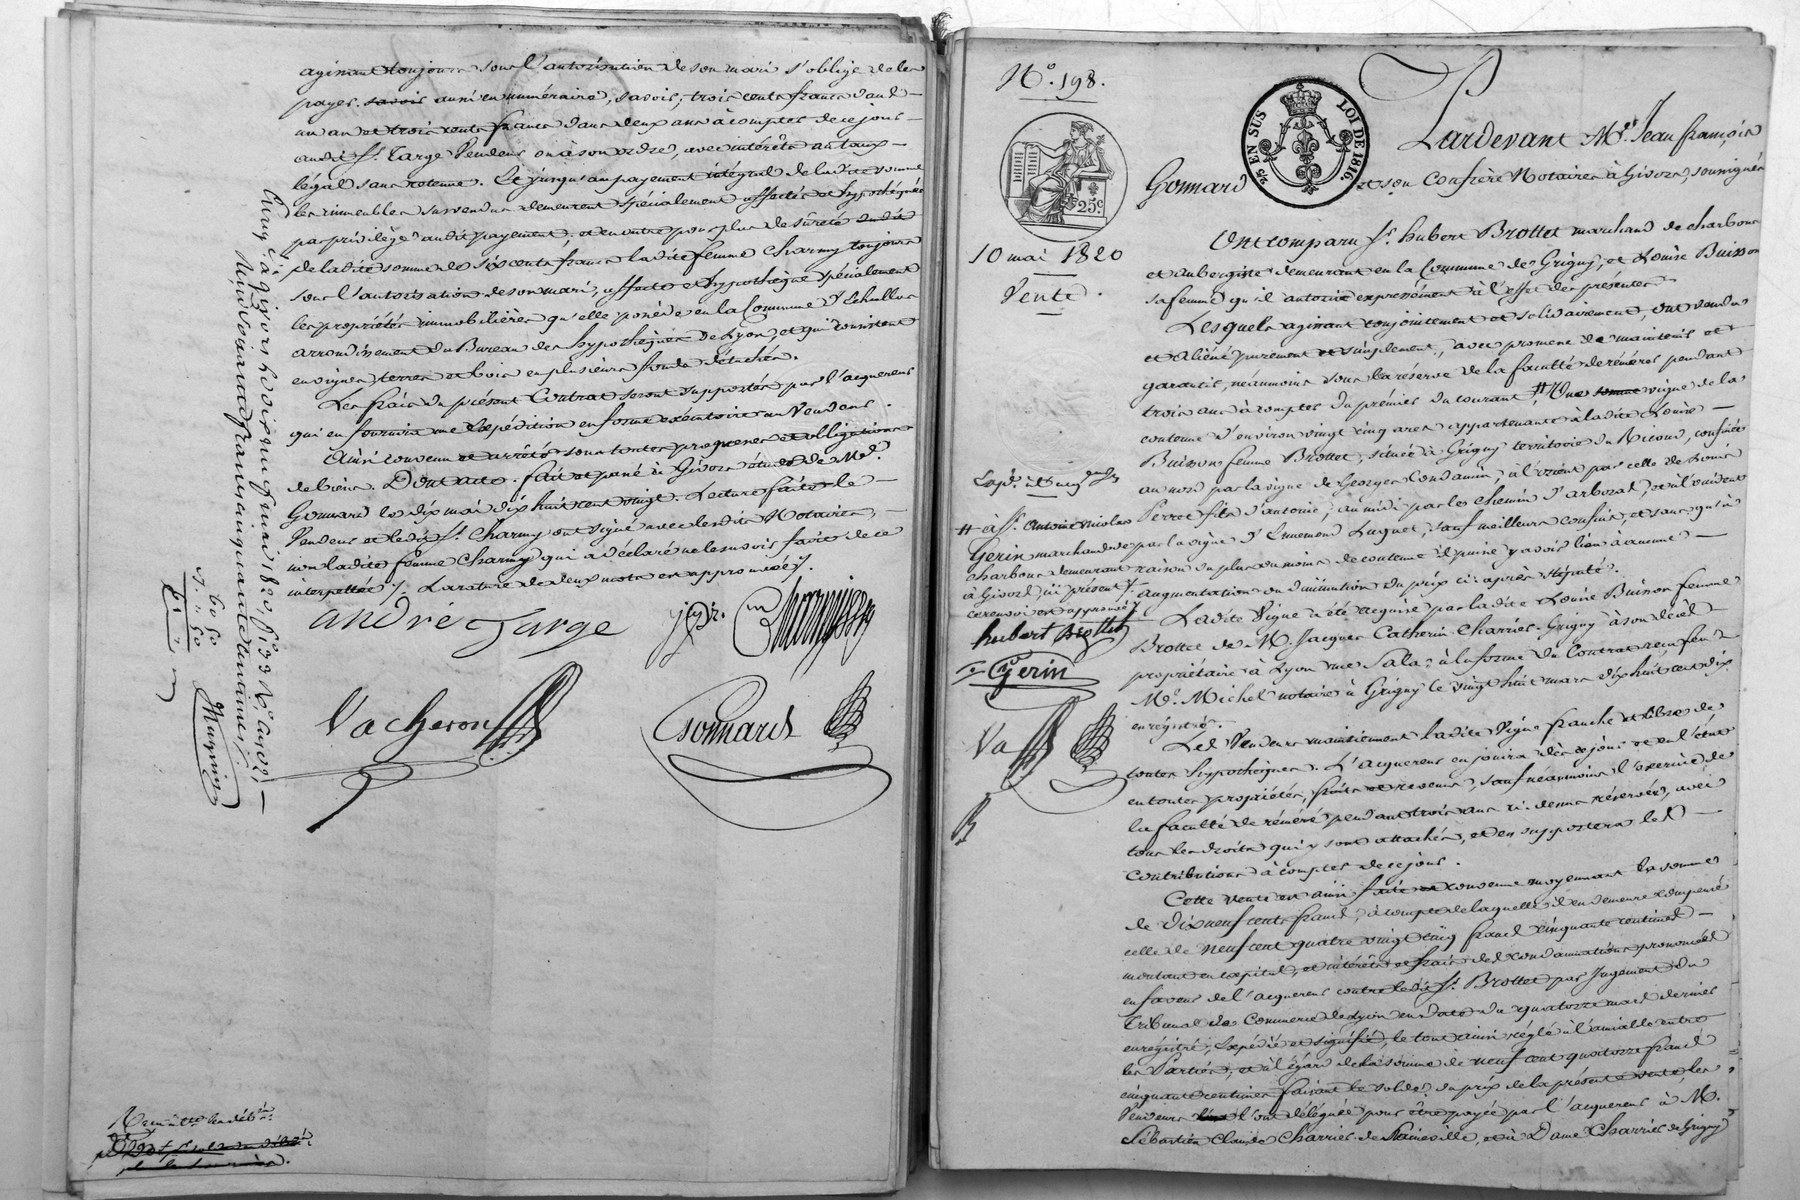 agissant toujours sous l'autorisation de son mari s'oblige de les
payer savoir aussi en numéraire, savoir, trois cents francs dans
un an et trois cents francs dans deux ans à compter de ce jour
audit Sr. Targe vendeur ou à son ordre, avec intérêts au taux
légal sans retenue. Et jusqu'au payement intégral de ladite somme
les immeubles sus vendus demeurent spécialement affectés et hypothéqués
par privilège audit payement, et en outre pour plus de sûreté
de ladite somme de six cents francs ladite femme Charmy toujours
sous l'autorisation de son mari, affecte et hypothèque spécialement
les propriétés immobilières qu'elle possède en la Commune d'Echallas
arrondissement du Bureau des hypothèques de Lyon, et qui consistent
en vignes, terres et bois en plusieurs fonds détachés.
Les frais du présent Contrat seront supportés par l'acquereur
qui en fournira une Expédition en forme exécutoire au Vendeur.
Ainsi convenu et arrêté sous toutes promesses et obligations
de biens. Dont acte. fait et passé à Givors étude de Me.
Gonnard le dix mai dix huit cent vingt. Lecture faite le
Vendeur et ledit Sr. Charmy ont signé avec lesdits Notaires,
non ladite femme Charmy qui a déclaré ne le savoir faire de ce
interpellée. La rature de deux mots est approuvée.
andré Targe
Charmy
Vacheron
Gonnard
N°. 198.
25 EN SUS
LOI DE 1816.
25c
10 mai 1820
Vente.
Pardevant Me. Jean françois
Gonnard et son Confrère Notaires à Givors, soussignés
Ont comparu Sr. hubert Brottet marchand de charbons
et aubergiste demeurant en la Commune de Grigny, et Louise Buisson
sa femme qu'il autorise expressément à l'effet des présentes
Lesquels agissant conjointement et solidairement, ont vendu
et aliéné purement et simplement, avec promesse de maintenir et
garantir, néanmoins sous la réserve de la faculté de réméré pendant
trois ans à compter du premier du courant, # Une vigne de la
contenue d'environ vingt cinq ares appartenante à ladite Louise
Buisson femme Brottet, située à Grigny territoire du Ricoud, confinée
au nord par la vigne de Georges Condamin, à l'orient par celle de Louis
Perret fils d'antoine, au midi par les chemin d'arboras, et à l'occident
par la vigne d'Ennemond Luquet, sauf meilleurs confins, et sans qu'à
raison du plus ou moins de contenue il puisse y avoir lieu à aucune
augmentation ou diminution du prix ci-après stipulé.
# à Sr. Antoine Nicolas
Gerin marchand de
charbons demeurant
à Givors, ici présent
ce renvoi est approuvé
hubert Brottet
Gerin
Va
B
Ladite Vigne a été acquise par ladite Louise Buisson femme
Brottet de M. Jacques Catherin Charrier-Grigny à son décès
propriétaire à Lyon rue Sala, à la forme du Contrat reçu feu
Me. Michel notaire à Grigny le vingt huit mars dix huit cent dix
enregistré.
Les Vendeurs maintiennent ladite Vigne franche et libre de
toutes hypothèques. L'acquereur en jouira dès ce jour et en l'état
en toutes propriétés, fruits et revenus, sauf néanmoins l'exercice de
la faculté de réméré pendant trois ans ci-dessus réservée, avec
tous les droits qui y sont attachés, et en supportera les
contributions à compter de ce jour.
Cette vente est ainsi faite et convenue moyennant la somme
de Dix neuf cents francs, à compte de laquelle il en demeure compensé
celle de neuf cent quatre vingt cinq francs cinquante centimes
montant en capital, et intérêts et frais des condamnations prononcées
en faveur de l'acquereur contre ledit Sr. Brottet par Jugement du
Tribunal de Commerce de Lyon en date du quatorze mars dernier
enregistré, expédié et signifié, le tout ainsi réglé à l'amiable entre
les Parties, et à l'égard de la somme de neuf cent quatorze francs
cinquante centimes faisant le solde du prix de la présente vente, les
Vendeurs l'ont déléguée pour être payée par l'acquereur à M.
Sébastien Claude Charrier de Sainneville, et à Dame Charrier de Grigny